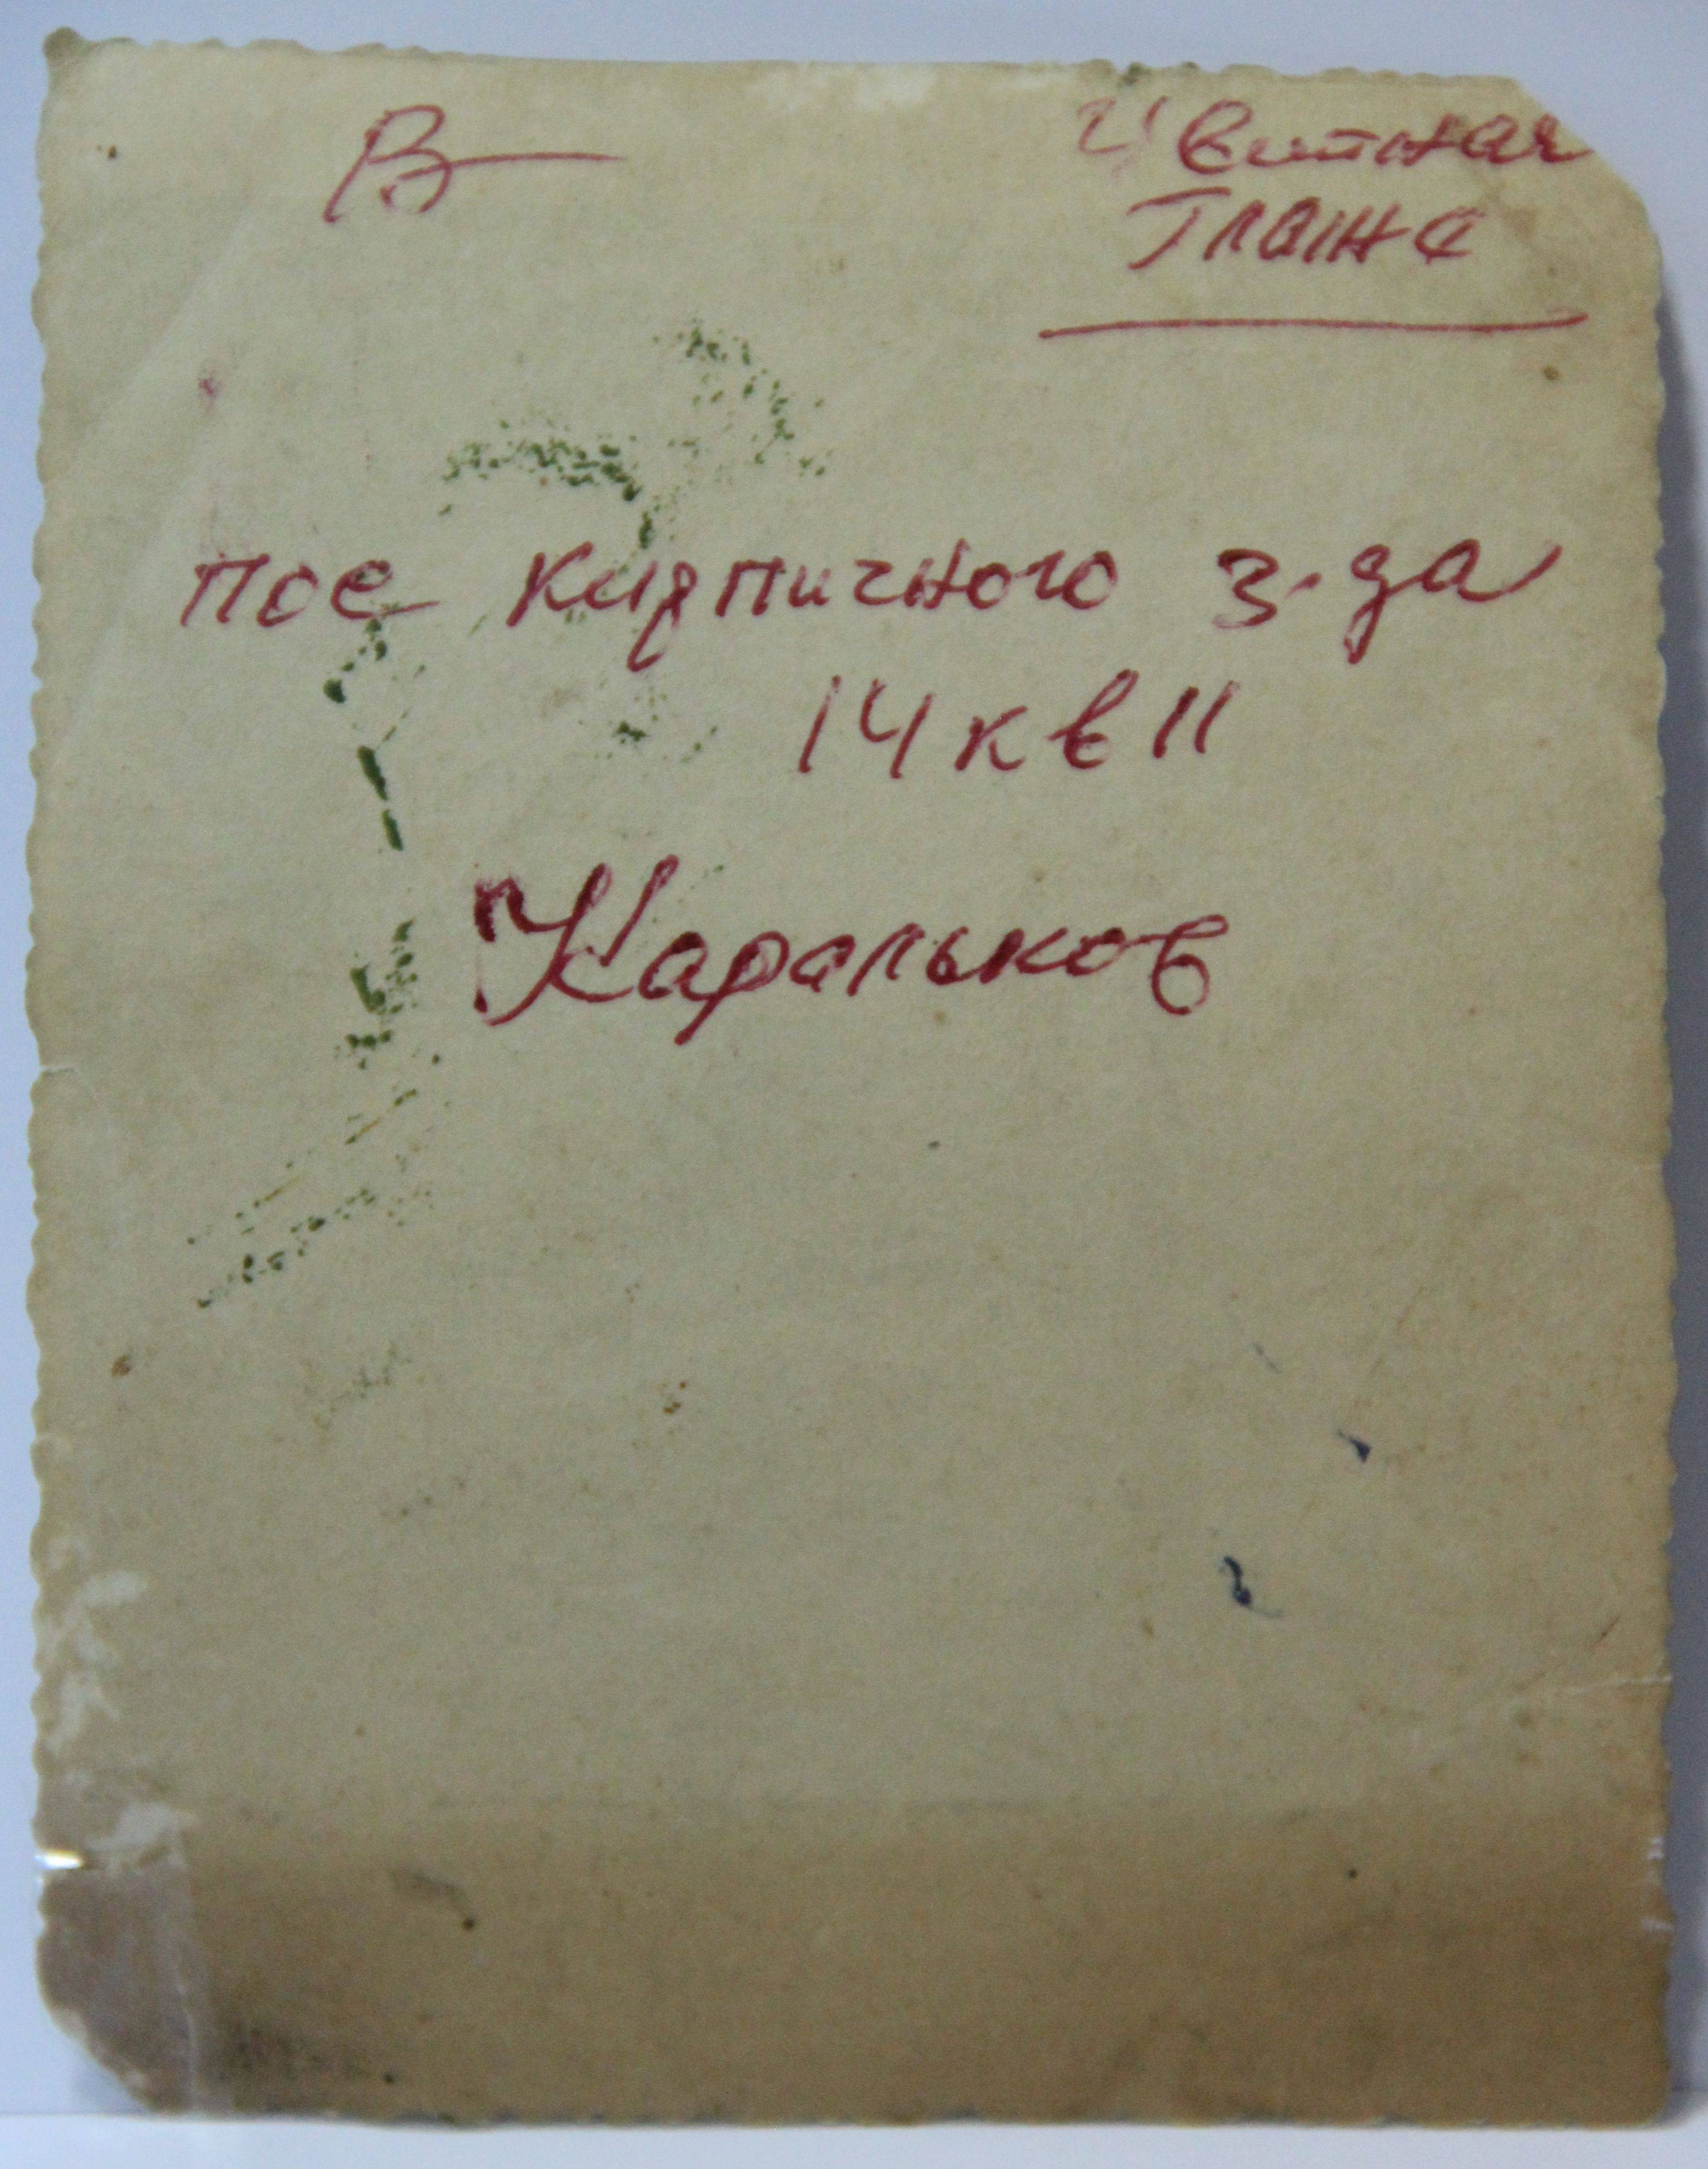 В
Цветная
Глянс
пос кирпичного з-да
14 кв 11
Карольков